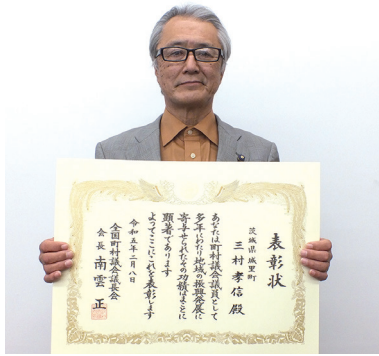 表彰状
茨城県 城里町
三村孝信 殿
あなたは町村議会議員として
多年にわたり地域の振興発展に
寄与せられたその功績はまことに
顕著であります
よってここにこれを表彰します
令和五年二月八日
全国町村議会議長会
会長 南雲 正